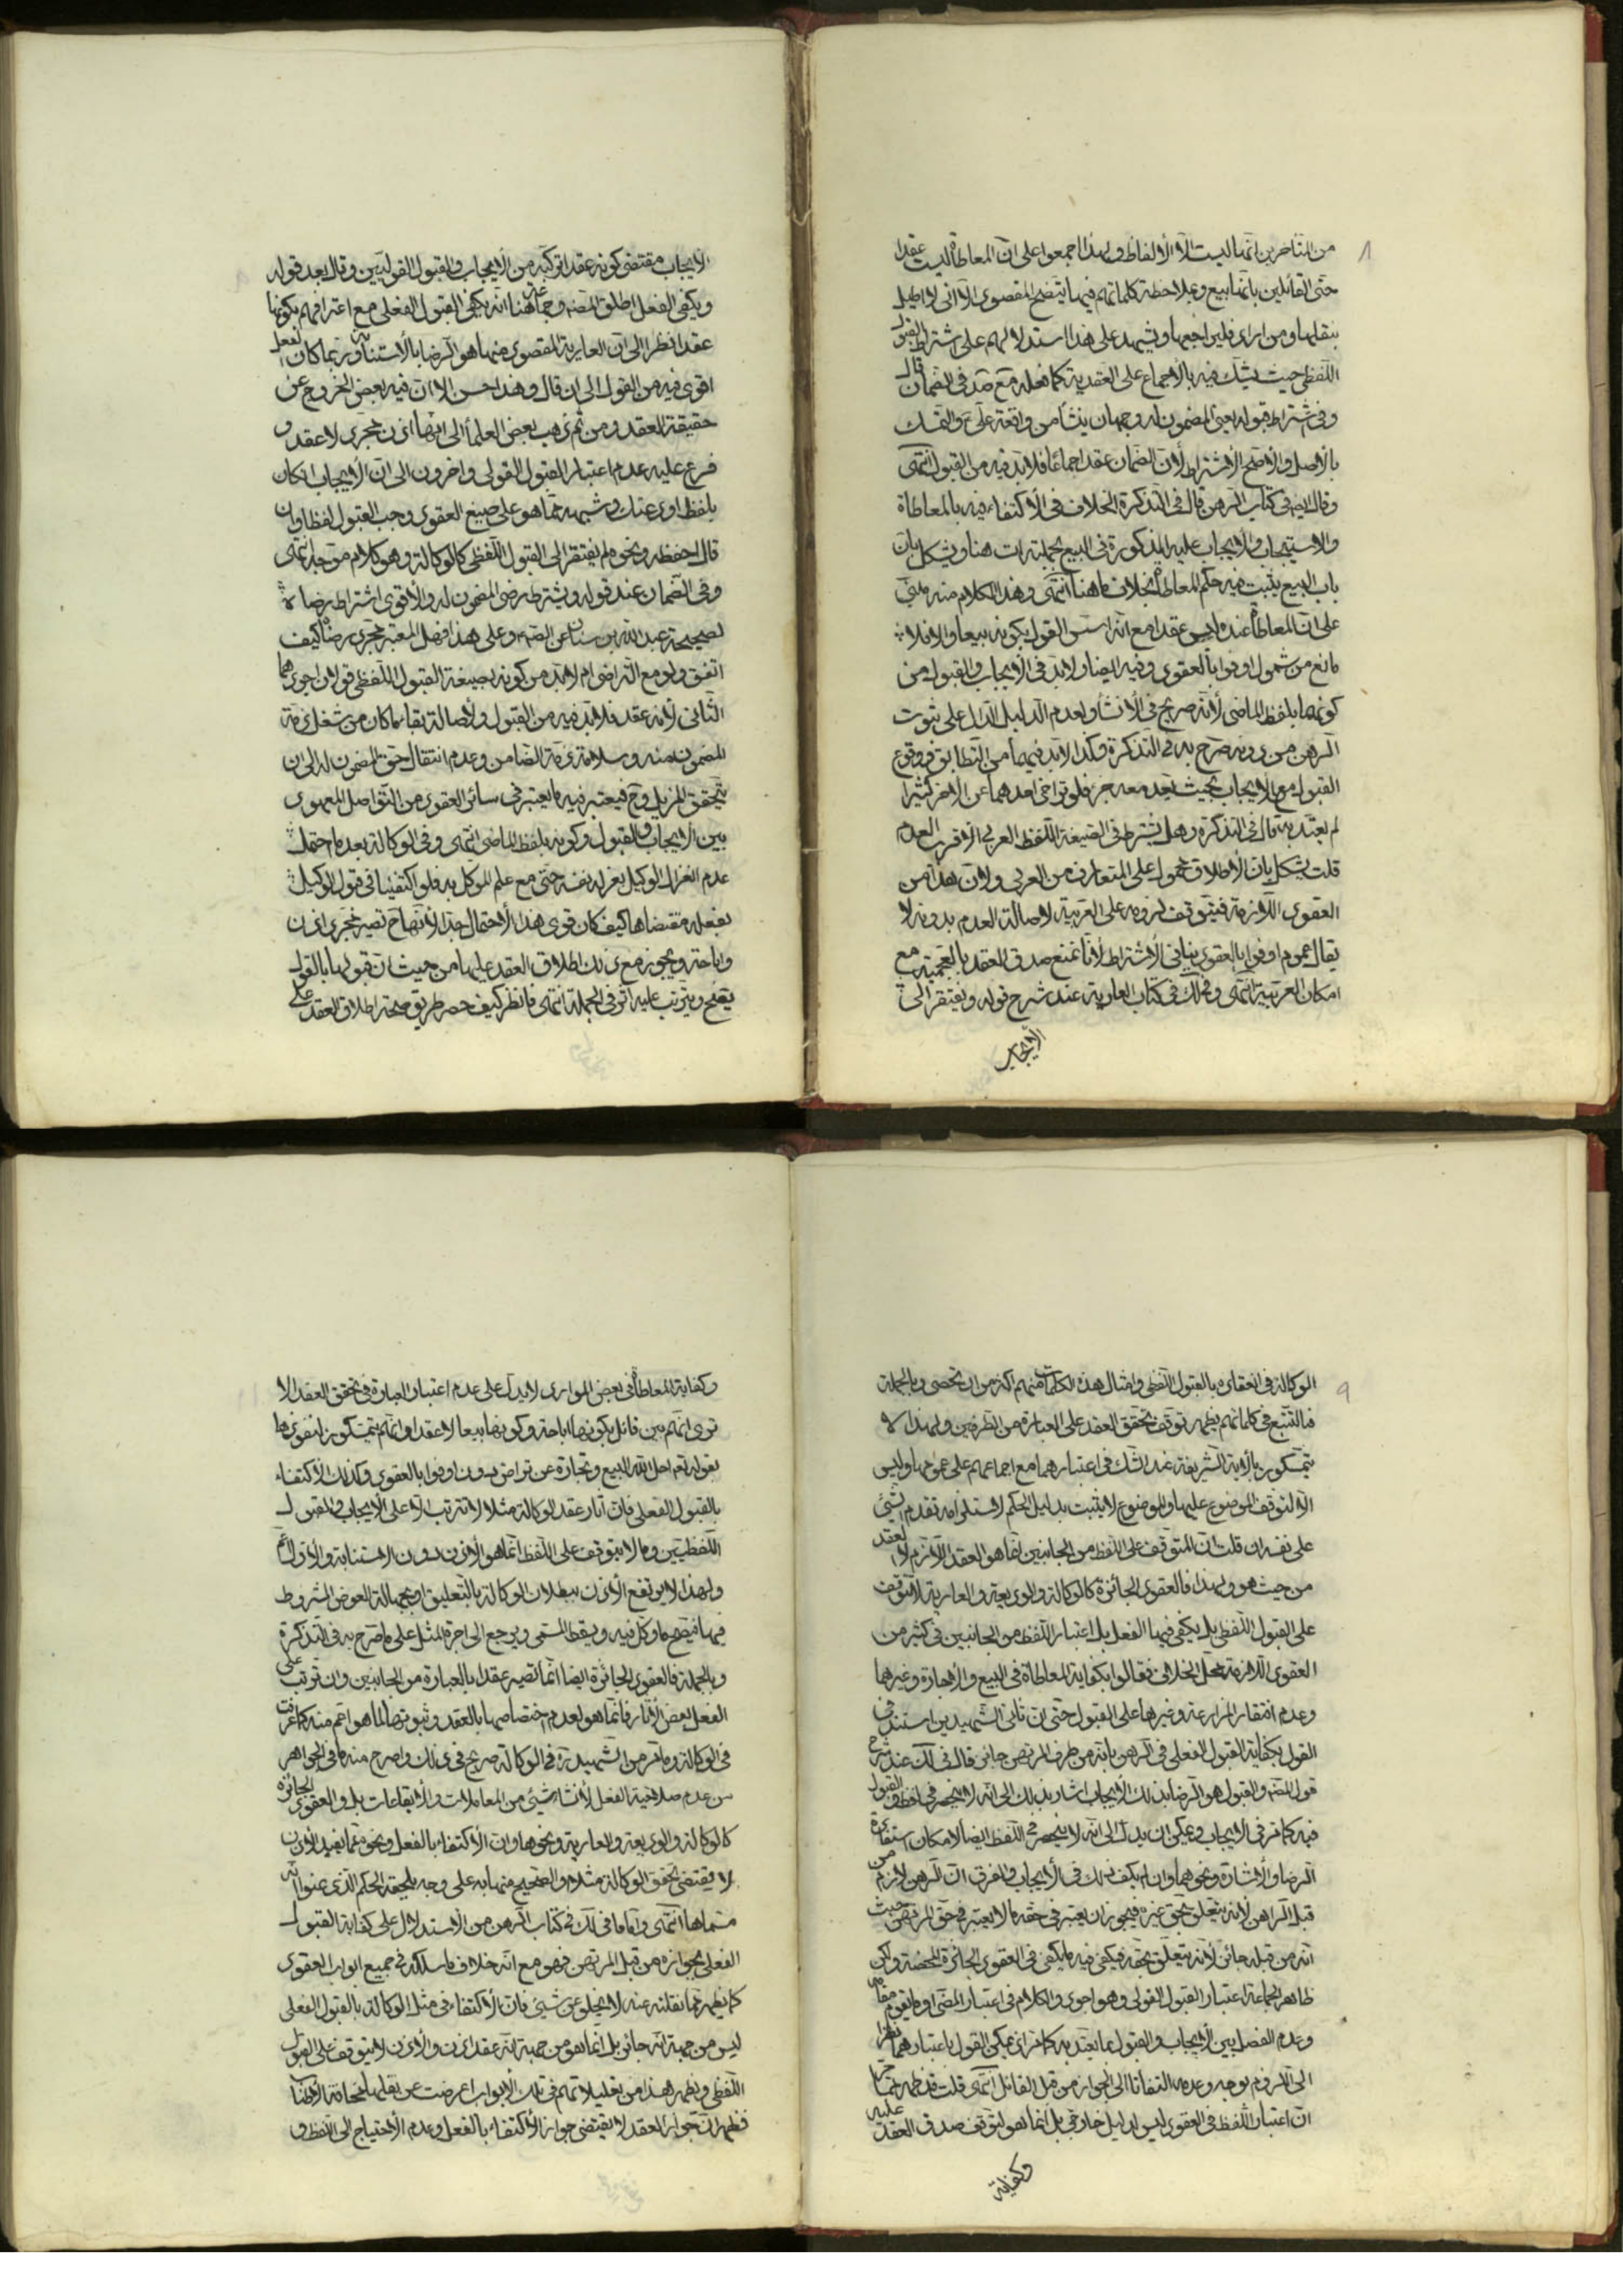 ٨
من المتأخرين انها ليست الا الالفاظ ولهذا اجمعوا على ان المعاطاة ليست عقدا
حتى القائلين بانها بيع وبملاحظة كلماتهم فيها يتضح المقصود الا اني لا اطيل
بنقلها ومن اراد فليراجعها ويشهد على هذا استدلالهم على اشتراط القبول
اللفظي حيث يشك فيه بالاجماع على العقدية كما فعله مع صد في الضمان قال
وفي اشتراط قبوله يعني المضمون له وجهان ينشأ من واقعة علي ع والتمسك
بالاصل والاصح الاشتراط لان الضمان عقد اجماعا فلا بد فيه من القبول انتهى
وقال ايضا في كتاب الرهن قال في التذكرة الخلاف في الاكتفاء فيه بالمعاطاة
والاستيجاب والايجاب عليه المذكورة في البيع بجملته ات هنا ويشكل بان
باب البيع يثبت فيه حكم المعاطاة بخلاف ما هنا انتهى وهذا الكلام منه مبني
على ان المعاطاة عنده ليس عقدا مع انه اسس القول بكونه بيعا والا فلا
مانع من شمول اوفوا بالعقود وفيه ايضا ولا بد في الايجاب والقبول من
كونهما بلفظ الماضي لأنه صريح في الانشأ ولعدم الدليل الدال على ثبوت
الرهن من دونه صرح به في التذكرة وكذا لابد فيهما من التطابق ووقوع
القبول مع الايجاب بحيث يعد معه جزء فلو تراخى احدهما عن الاخر كثيرا
لم يعتد به قال في التذكرة وهل يشترط في الصيغة اللفظ العربي الاقرب العدم
قلت يشكل بان الاطلاق محمول على المتعارف من العربي ولان هذا من
العقود اللازمة فيتوقف لزومه على العربية لاصالة العدم بدونه لا
يقال عموم اوفوا بالعقود ينافي الاشتراط لانا نمنع صدق العقد بالعجمية مع
امكان العربية انتهى وقال في كتاب العارية عند شرح قوله ويفتقر الى
الايجاب
الايجاب مقتضى كونه عقدا تركبه من الايجاب والقبول القوليين وقال بعد قوله
ويكفي الفعل اطلق المصنف وجماعة هنا انه يكفي القبول الفعلي مع اعترافهم بكونها
عقدا نظرا الى ان العارية المقصود منها هو الرضا بالاستنابة وربما كان الفعل
اقوى فيه من القول الى ان قال وهذا حسن الا ان فيه بعض الخروج عن
حقيقة العقد ومن ثم ذهب بعض العلمأ الى انها اذن مجرد لا عقد و
فرع عليه عدم اعتبار القبول القولي واخرون الى ان الايجاب ان كان
بلفظ اودعتك وشبهه مما هو على صيغ العقود وجب القبول لفظا وان
قال احفظه ونحوه لم يفتقر الى القبول اللفظي كالوكالة وهو كلام موجه انتهى
وفي الضمان عند قوله ويشترط رضى المضمون له والاقوى اشتراط رضاه
لصحيحة عبد الله بن سنان عن الصم وعلى هذا فهل المعتبر مجرد رضاه كيف
اتفق ولو مع التراضي ام لابد من كونه بصيغة القبول اللفظي قولان اجودهما
الثاني لأنه عقد فلابد فيه من القبول ولاصالة بقاء ما كان من شغل ذمة
المضمون عنه وسلامة ذمة الضامن وعدم انتقال حق المضمون له الى ان
يتحقق المزيل وح فيعتبر فيه ما يعتبر في سائر العقود من التواصل المعهود
بين الايجاب والقبول وكونه بلفظ الماضي انتهى وفي الوكالة بعد ما احتمل
عدم انعزال الوكيل بعزله نفسه حتى مع علم الموكل به فلو اكتفينا في قبول الوكيل
بفعله مقتضاها كيف كان قوى هذا الاحتمال جدا لأنها ح تصير مجرد اذن
واباحة ويجوز مع ذلك اطلاق العقد عليها من حيث ان قبولها بالقول
يصح ويترتب عليه اثر في الجملة انتهى فانظر كيف حصر طريق صحة اطلاق العقد على
٩
الوكالة في انعقاده بالقبول اللفظي وامثال هذه الكلمات منهم اكثر من ان تحصى وبالجملة
فالتتبع في كلماتهم يظهر توقف تحقق العقد على العبارة من الطرفين ولهذا لا
يتمسكون بالآية الشريفة عند الشك في اعتبارهما مع اجماعهم على عمومها وليس
الا لتوقف الموضوع عليهما والموضوع لا يثبت بدليل الحكم لاستلزامه تقدم الشئ
على نفسه ان قلت ان المتوقف على اللفظ من الجانبين انما هو العقد اللازم لا العقد
من حيث هو ولهذا فالعقود الجائزة كالوكالة والوديعة والعارية لا تتوقف
على القبول اللفظي بل يكفي فيها الفعل بل اعتبار اللفظ من الجانبين في كثير من
العقود اللازمة محل الخلاف فقالوا بكفاية المعاطاة في البيع والاجارة وغيرهما
وعدم افتقار المزارعة وغيرها على القبول حتى ان ثاني الشهيدين استند في
القول بكفاية القبول الفعلي في الرهن بانه من طرف المرتهن جائز قال في لك عند شرح
قول المصنف والقبول هو الرضا بذلك الايجاب اشار بذلك الى انه لا ينحصر في لفظ القبول
فيه كما مر في الايجاب ويمكن ان يدل الى انه لا ينحصر في اللفظ ايضا لامكان استفادة
الرضا والاشارة ونحوهما وان لم يكف ذلك في الايجاب والفرق ان الرهن لازم من
قبل الراهن لأنه يتعلق بحق غيره فيجوز ان يعتبر في حقه ما لا يعتبر في حق المرتهن حيث
انه من قبله جائز لأنه يتعلق بحقه فيكفي فيه ما يكفي في العقود الجائزة المحضة ولكن
ظاهر الجماعة اعتبار القبول القولي وهو اجود والكلام في اعتبار المضى او ما يقوم مقامه
وعدم الفصل بين الايجاب والقبول بما يعتد به كما مر اذ يمكن القول باعتبارهما نظرا
الى اللزوم بوجه وعدمه التفاتا الى الجواز من قبل القابل انتهى قلت قد ظهر مما مر
ان اعتبار اللفظ في العقود ليس لدليل خارجي بل انما هو لتوقف صدق العقد عليه
وكفاية
وكفاية المعاطاة في بعض الموارد لا يدل على عدم اعتبار العبارة في تحقق العقد الا
ترى انهم بين قائل بكونها اباحة وكونها بيعا لا عقدا وانهم يتمسكون لنفوذها
بقوله تعم احل الله البيع وتجارة عن تراض دون اوفوا بالعقود وكذلك الاكتفاء
بالقبول الفعلي فان اثار عقد الوكالة مثلا لا تترتب الا على الايجاب والقبول
اللفظيين وما لا يتوقف على اللفظ انما هو الاذن دون الاستنابة والاول اعم
ولهذا لا يرتفع الاذن ببطلان الوكالة بالتعليق او بجهالة العوض المشروط
فيها فيصح ما وكل فيه ويسقط المسمى ويرجع الى اجرة المثل على ما صرح به في التذكرة
وبالجملة فالعقود الجائزة ايضا انما تصير عقدا بالعبارة من الجانبين وان ترتب على
الفعل بعض الاثار فانما هو لعدم اختصاصها بالعقد وثبوتها لما هو اعم منه كما عرفت
في الوكالة وما مر من الشهيد ره في الوكالة صريح في ذلك واصرح منه ما في الجواهر
من عدم صلاحية الفعل لأنشاء شئ من المعاملات والايقاعات بل والعقود الجائزة
كالوكالة والوديعة والعارية ونحوها وان الاكتفاء بالفعل ونحوه مما يفيد الاذن
لا يقتضي تحقق الوكالة مثلا والصحيح منها به على وجه يلحقه الحكم الذي عنوانه
مسماها انتهى واما ما في لك في كتاب الرهن من الاستدلال على كفاية القبول
الفعلي بجوازه من قبل المرتهن فهو مع انه خلاف ما سلكه في جميع ابواب العقود
كما يظهر مما نقلته عنه لا يخلو عن شئ فان الاكتفاء في مثل الوكالة بالقبول الفعلي
ليس من جهة انه جائز بل انما هو من جهة انه عقد اذن والاذن لا يتوقف على القبول
اللفظي ويظهر هذا من تعليلاتهم في تلك الابواب اعرضت عن نقلها مخافة الاطناب
فظهر ان جواز العقد لا يقتضي جواز الاكتفاء بالفعل وعدم الاحتياج الى اللفظ و